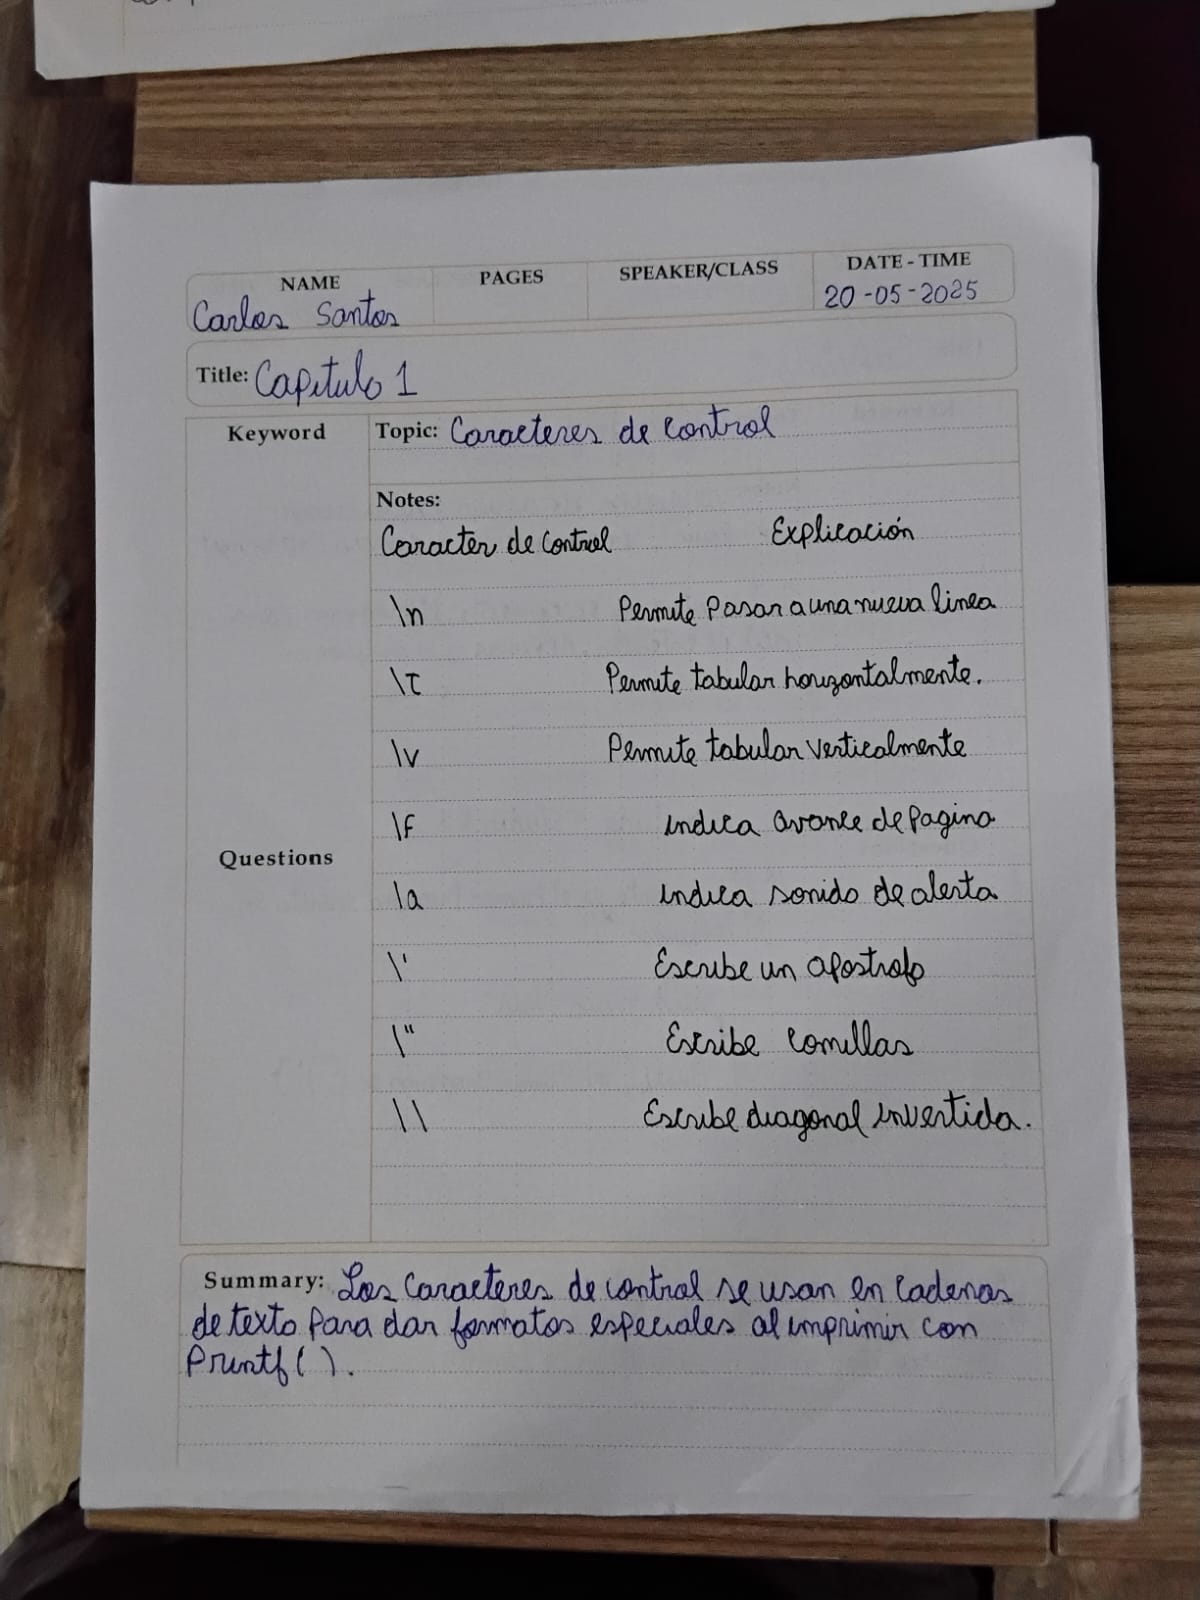 NAME PAGES SPEAKER/CLASS DATE - TIME
Carlos Santos 20-05-2025
Title: Capitulo 1
Keyword Topic: Caracteres de control
Notes:
Caracter de Control Explicación
\n Permite Pasar a una nueva linea
\t Permite tabular horizontalmente.
\v Permite tabular verticalmente
\f indica avance de Pagina
Questions
\a indica sonido de alerta
\' Escribe un apostrofo
\" Escribe comillas
\\ Escribe diagonal invertida.
Summary: Los Caracteres de control se usan en cadenas
de texto Para dar formatos especiales al imprimir con
Printf( ).